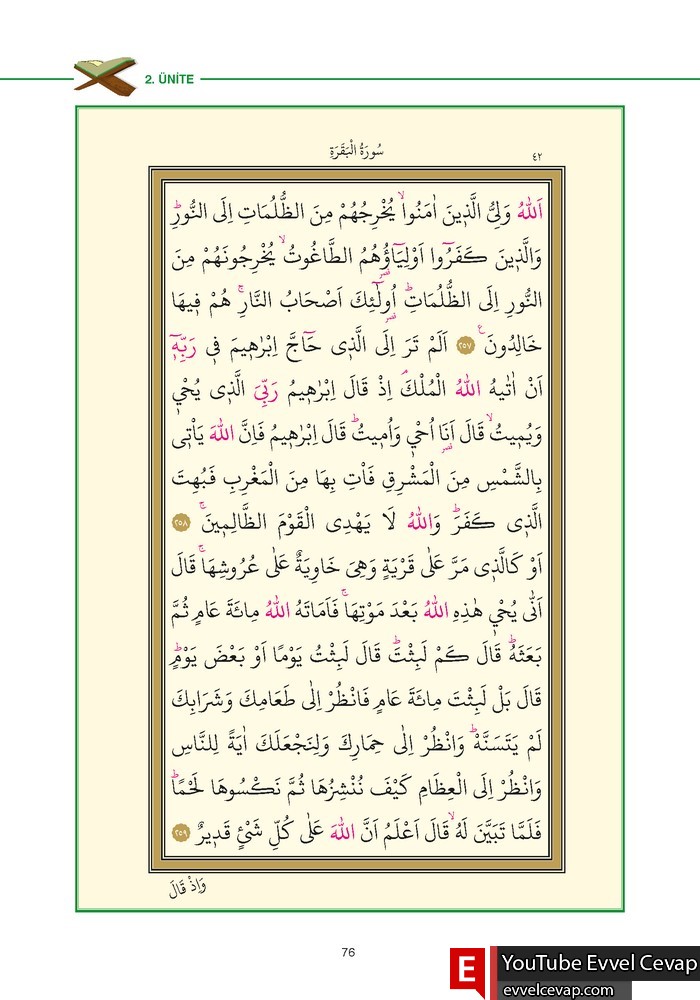 2. ÜNİTE
سُورَةُ الْبَقَرَةِ
٤٢
اَللّٰهُ وَلِيُّ الَّذٖينَ اٰمَنُواۙ يُخْرِجُهُمْ مِنَ الظُّلُمَاتِ اِلَى النُّورِؕ
وَالَّذٖينَ كَفَرُٓوا اَوْلِيَٓاؤُ۬هُمُ الطَّاغُوتُۙ يُخْرِجُونَهُمْ مِنَ
النُّورِ اِلَى الظُّلُمَاتِؕ اُو۬لٰٓئِكَ اَصْحَابُ النَّارِۚ هُمْ فٖيهَا
خَالِدُونَ ࣖ ٢٥٧ اَلَمْ تَرَ اِلَى الَّذٖى حَٓاجَّ اِبْرٰهٖيمَ فٖى رَبِّهٖٓ
اَنْ اٰتٰيهُ اللّٰهُ الْمُلْكَۘ اِذْ قَالَ اِبْرٰهٖيمُ رَبِّىَ الَّذٖى يُحْيٖ
وَيُمٖيتُۙ قَالَ اَنَا۬ اُحْيٖ وَاُمٖيتُؕ قَالَ اِبْرٰهٖيمُ فَاِنَّ اللّٰهَ يَاْتٖى
بِالشَّمْسِ مِنَ الْمَشْرِقِ فَاْتِ بِهَا مِنَ الْمَغْرِبِ فَبُهِتَ
الَّذٖى كَفَرَؕ وَاللّٰهُ لَا يَهْدِى الْقَوْمَ الظَّالِمٖينَۚ ٢٥٨
اَوْ كَالَّذٖى مَرَّ عَلٰى قَرْيَةٍ وَهِىَ خَاوِيَةٌ عَلٰى عُرُوشِهَاۚ قَالَ
اَنّٰى يُحْيٖ هٰذِهِ اللّٰهُ بَعْدَ مَوْتِهَاۚ فَاَمَاتَهُ اللّٰهُ مِائَةَ عَامٍ ثُمَّ
بَعَثَهُؕ قَالَ كَمْ لَبِثْتَؕ قَالَ لَبِثْتُ يَوْمًا اَوْ بَعْضَ يَوْمٍؕ
قَالَ بَلْ لَبِثْتَ مِائَةَ عَامٍ فَانْظُرْ اِلٰى طَعَامِكَ وَشَرَابِكَ
لَمْ يَتَسَنَّهْؕ وَانْظُرْ اِلٰى حِمَارِكَ وَلِنَجْعَلَكَ اٰيَةً لِلنَّاسِ
وَانْظُرْ اِلَى الْعِظَامِ كَيْفَ نُنْشِزُهَا ثُمَّ نَكْسُوهَا لَحْمًاؕ
فَلَمَّا تَبَيَّنَ لَهُۙ قَالَ اَعْلَمُ اَنَّ اللّٰهَ عَلٰى كُلِّ شَىْءٍ قَدٖيرٌ ٢٥٩
وَاِذْ قَالَ
76
E YouTube Evvel Cevap
evvelcevap.com